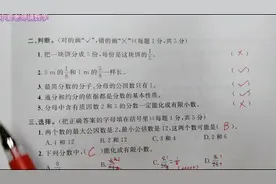 二、判断。(对的画“√”,错的画“×”)(每题1分,共5分)
1.把一块饼分成5份,每份是这块饼的1/5。 (×)
2. 5 m的1/8和1 m的5/8一样长。 (√)
3.最简分数的分子、分母的公因数只有1。 (√)
4.通分和约分的依据都是分数的基本性质。 (√)
5.分母中含有质因数2和5的分数一定能化成有限小数。 (×)
三、选择。(把正确答案的字母填在括号里)(每题1分,共5分)
1.两个数的最大公因数是2,最小公倍数是12,这两个数可能是( B )。
A.4和12 C.3和4 D.2和6
2.下列分数中,( C )能化成有限小数。
A. B. C. D.